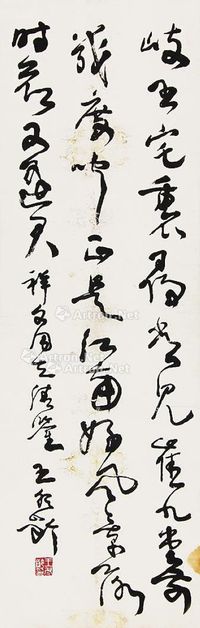 岐王宅裏尋常見崔九堂前
幾度聞正是江南好風景落
時節又逢君
同志清鑒 王
Artron.Net